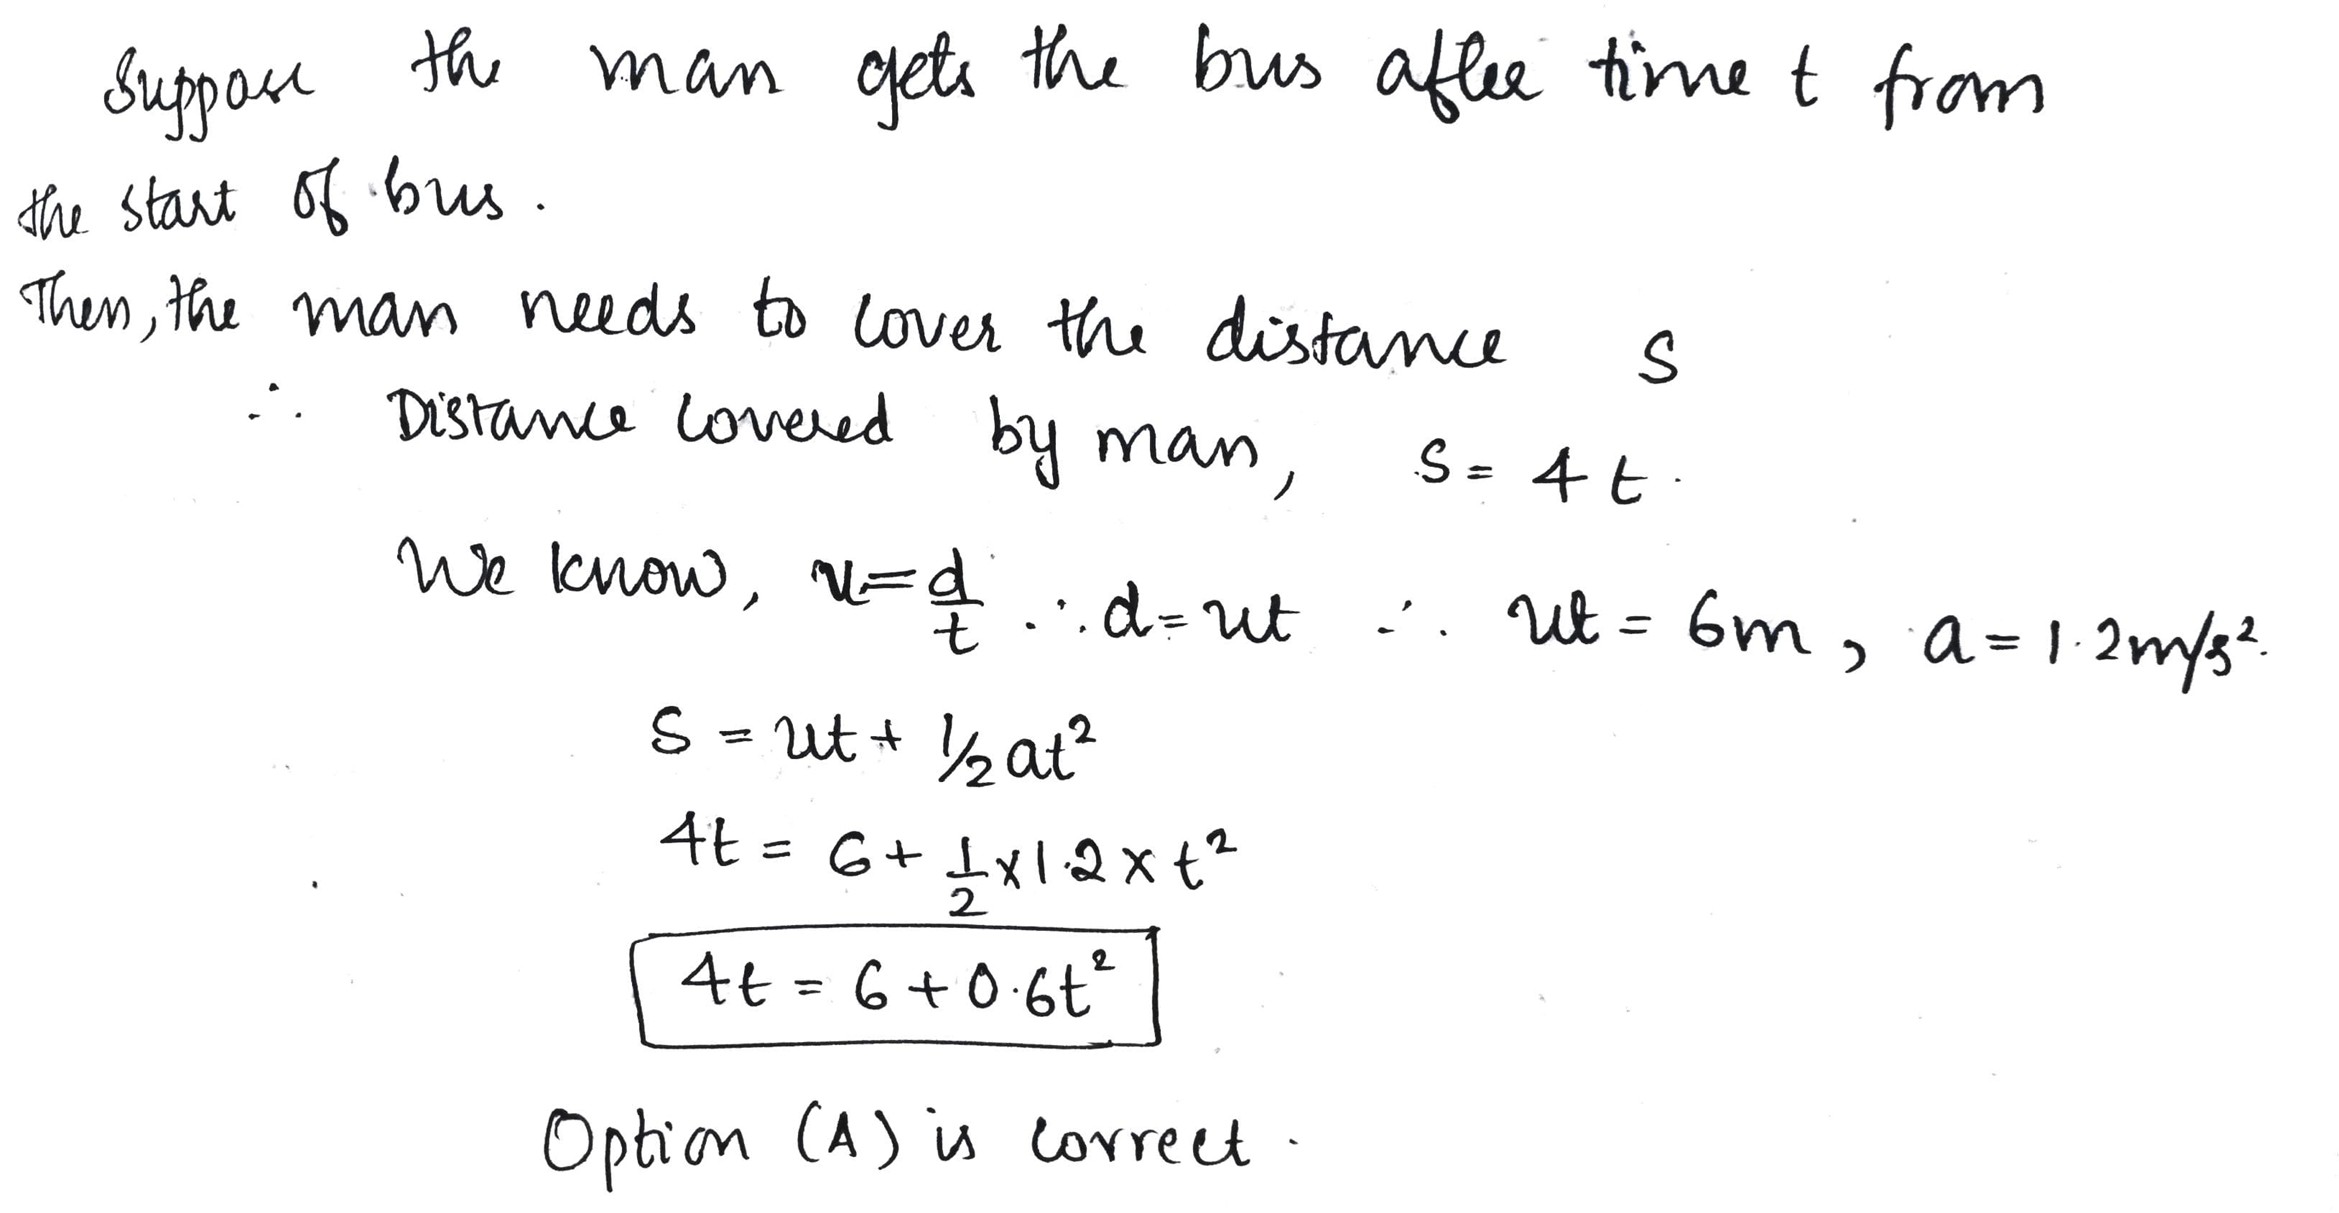 Suppose the man gets the bus after time t from
the start of bus.
Then, the man needs to cover the distance S
∴ Distance covered by man, S = 4t.
We know, u = d/t ∴ d = ut ∴ ut = 6m, a = 1.2m/s².
S = ut + 1/2 at²
4t = 6 + 1/2 x 1.2 x t²
4t = 6 + 0.6t²
Option (A) is correct.